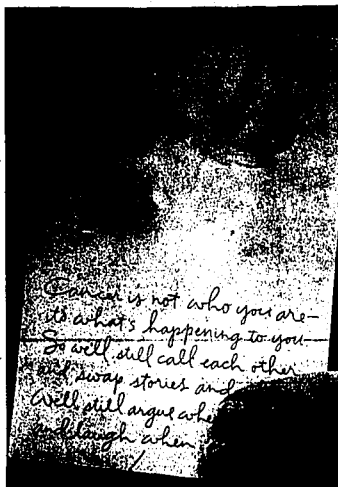 Cancer is not who you are—
it's what's happening to you—
So we'll still call each other
and swap stories and
We'll still argue whe
and laugh when